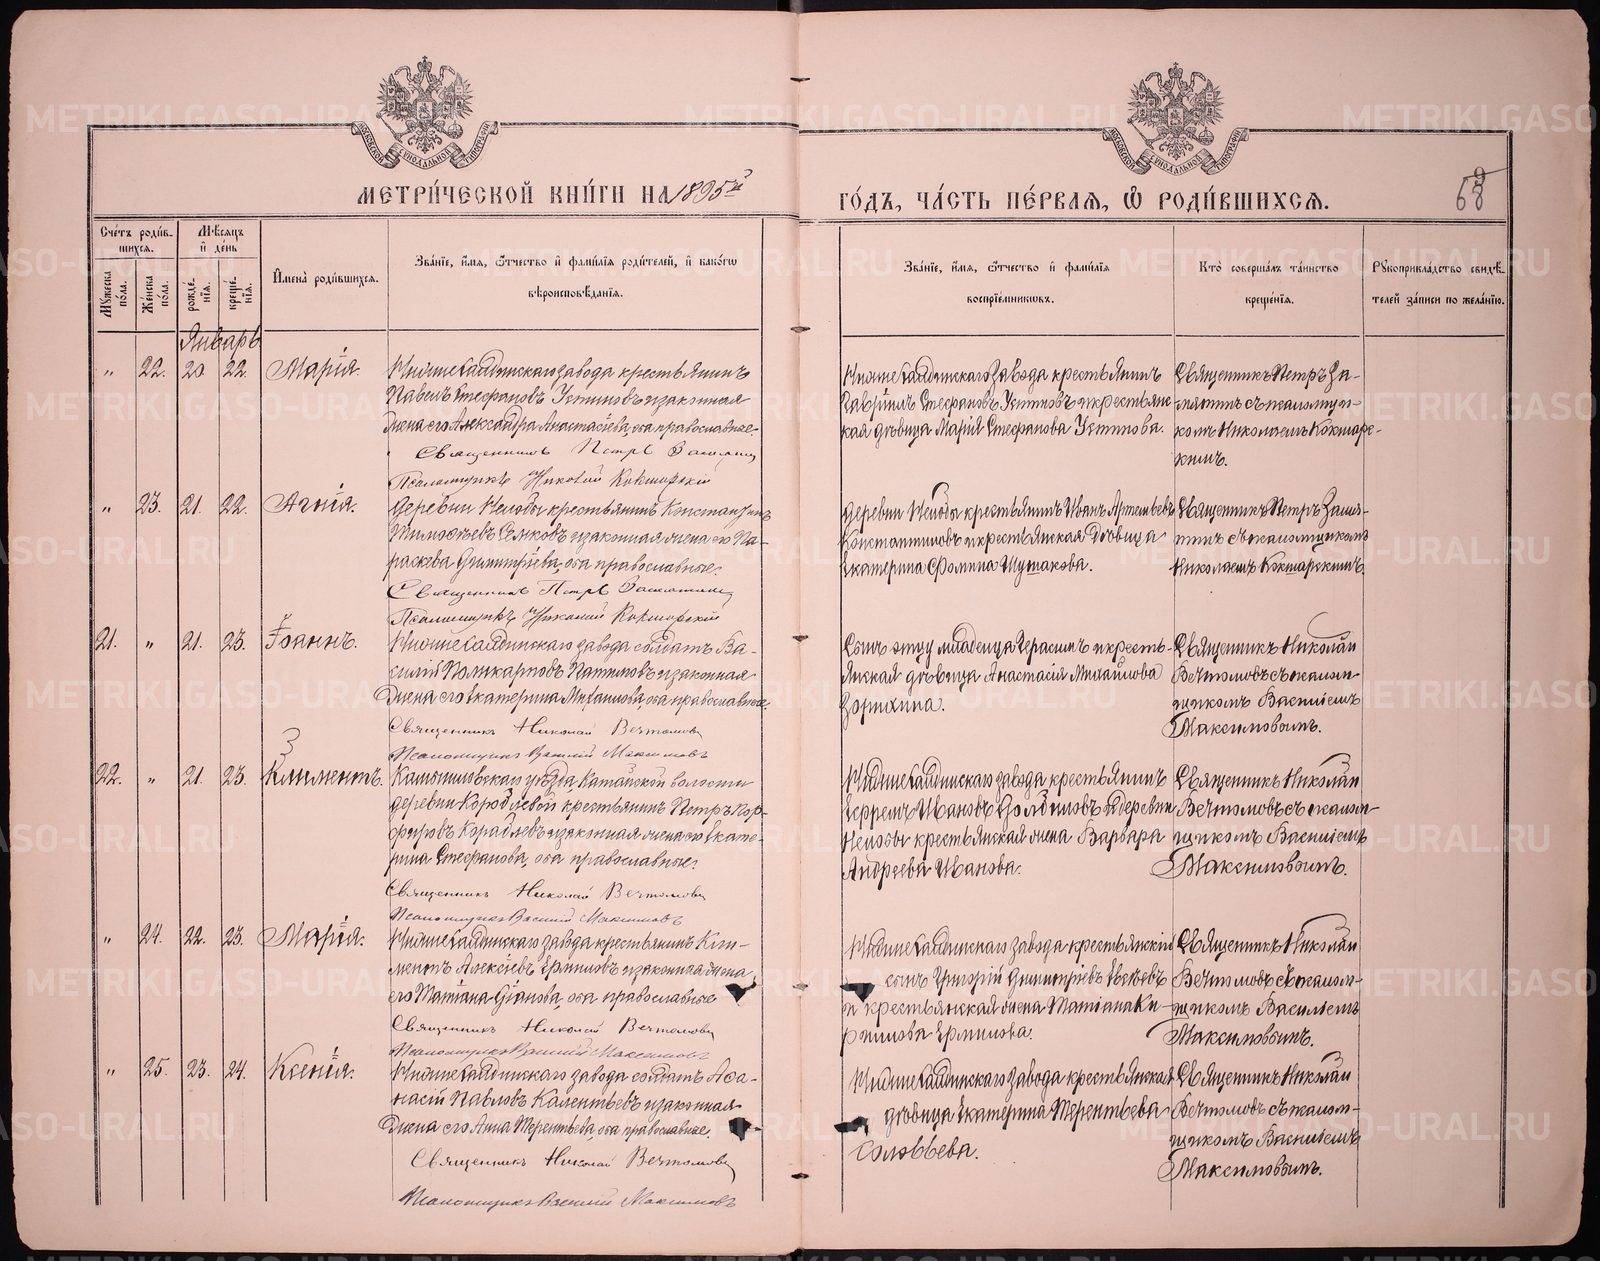 МЕТРИ́ЧЕСКОЙ КНИ́ГИ НА 1895й ГО́ДЪ, ЧА́СТЬ ПЕ́РВАѦ, Ѡ РОДИ́ВШИХСѦ.
68
Сче́тъ роди́вшихсѧ.
Мꙋ́жеска по́ла.
Же́нска по́ла.
Мѣ́сѧцъ и҆ де́нь
рожде́нїѧ.
креще́нїѧ.
И҆мена̀ роди́вшихсѧ.
Зва́нїе, и҆́мѧ, ѻ҆́тчество и҆ фами́лїѧ роди́телей, и҆ како́гѡ
вѣроисповѣ́данїѧ.
Зва́нїе, и҆́мѧ, ѻ҆́тчество и҆ фами́лїѧ
воспрїе́мниковъ.
Кто̀ соверша́лъ та́инство
креще́нїѧ.
Рꙋкоприкла́дство свидѣ́телей за́писи по жела́нїю.
Январь
" 22. 20 22. Марія.
Нижнесалдинскаго завода крестьянинъ
Павелъ Стефановъ Устиновъ и законная
жена его Александра Анастасіева, оба православные.
Священникъ Петръ
Псаломщикъ Николай Кокшарскій
Нижнесалдинскаго завода крестьянинъ
Гавріилъ Стефановъ Устиновъ и крестьянская дѣвица Марія Стефанова Устинова.
Священникъ Петръ
съ псаломщикомъ Николаемъ Кокшарскимъ.
" 23. 21. 22. Агнія.
Деревни Нелобы крестьянинъ Константинъ
Тимофѣевъ и законная жена его Параскева Димитріева, оба православные.
Священникъ Петръ
Псаломщикъ Николай Кокшарскій
Деревни Нелобы крестьянинъ Иванъ Артемьевъ
Константиновъ и крестьянская дѣвица
Екатерина Фомина Шутакова.
Священникъ Петръ
съ псаломщикомъ
Николаемъ Кокшарскимъ.
21. " 21. 23. Іоаннъ.
Нижнесалдинскаго завода солдатъ Василій Поликарповъ и законная
жена его Екатерина Михаилова, оба православные.
Священникъ Николай Вечтомовъ
Псаломщикъ Василій Максимовъ
Сынъ отцу младенца Герасимъ и крестьянская дѣвица Анастасія Михайлова
Зорихина.
Священникъ Николай
Вечтомовъ съ псаломщикомъ Василіемъ
Максимовымъ.
22. " 21. 23. Климентъ.
Камышловскаго уѣзда, Катайской волости
деревни Корюковой крестьянинъ Петръ Порфировъ Кораблевъ и законная жена его Екатерина Стефанова, оба православные.
Священникъ Николай Вечтомовъ
Псаломщикъ Василій Максимовъ
Нижнесалдинскаго завода крестьянинъ
Ефремъ Ивановъ и деревни
Нелобы крестьянская жена Варвара
Андреева Иванова.
Священникъ Николай
Вечтомовъ съ псаломщикомъ Василіемъ
Максимовымъ.
" 24. 22. 23. Марія.
Нижнесалдинскаго завода крестьянинъ Климентъ Алексіевъ Ермиловъ и законная жена
его Татіана Діанова, оба православные
Священникъ Николай Вечтомовъ
Псаломщикъ Василій Максимовъ
Нижнесалдинскаго завода крестьянскій
сынъ Григорій Димитріевъ Евсѣевъ
и крестьянская жена Татіана Кирилова Ермилова.
Священникъ Николай
Вечтомовъ съ псаломщикомъ Василіемъ
Максимовымъ.
" 25. 23. 24. Ксенія.
Нижнесалдинскаго завода солдатъ Афанасій Павловъ Калентьевъ и законная
жена его Анна Терентьева, оба православные.
Священникъ Николай Вечтомовъ
Псаломщикъ Василій Максимовъ
Нижнесалдинскаго завода крестьянская
дѣвица Екатерина Терентьева
Соловьева.
Священникъ Николай
Вечтомовъ съ псаломщикомъ Василіемъ
Максимовымъ.
METRIKI.GASO-URAL.RU